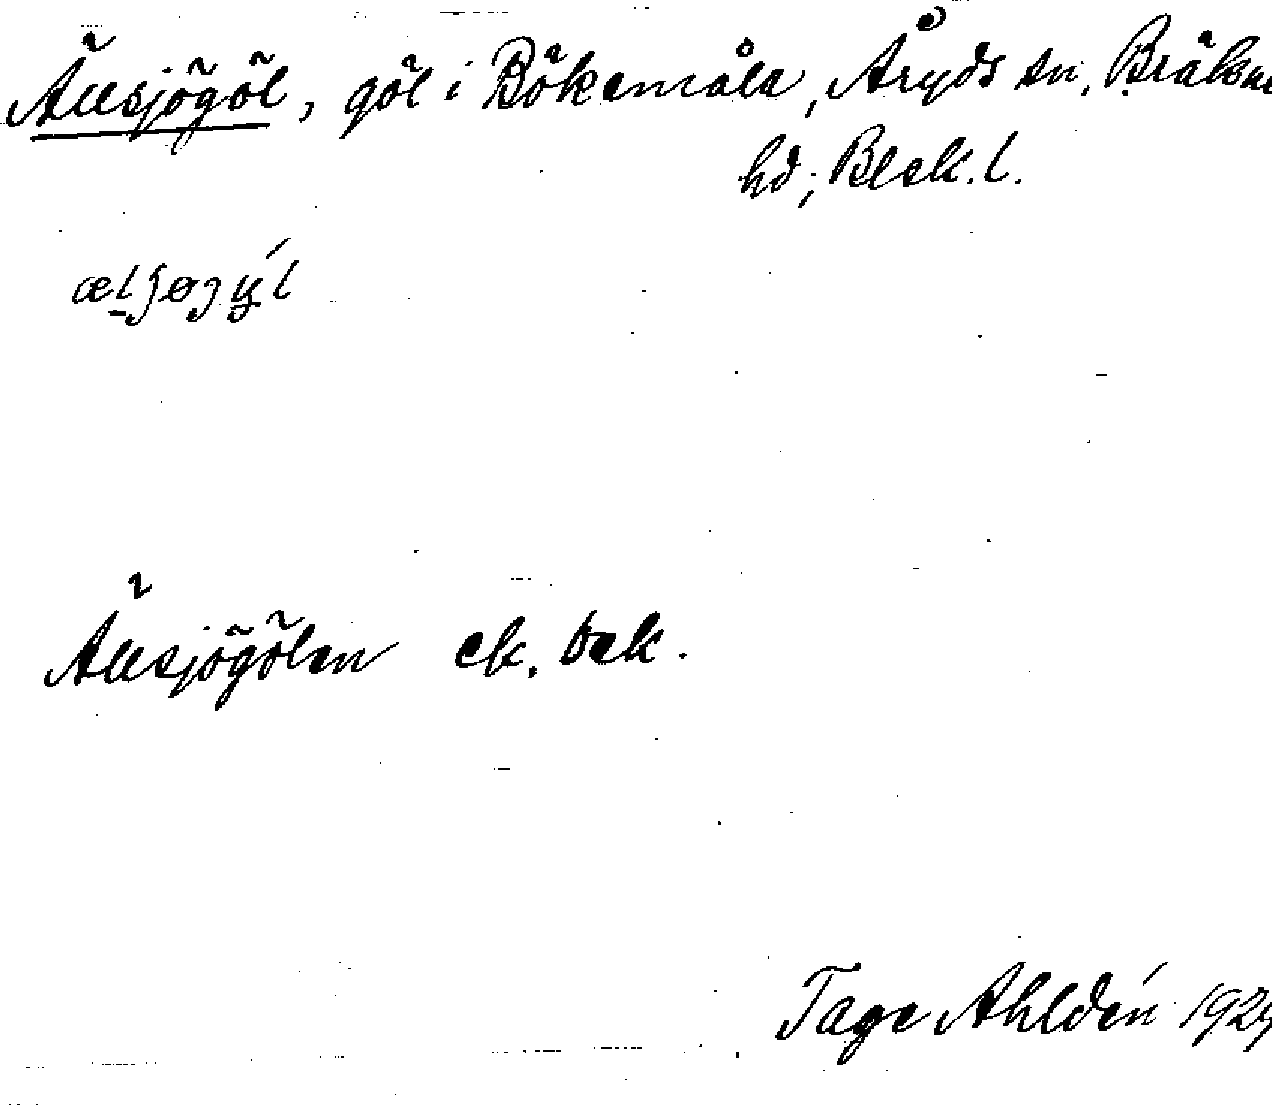 Ällsjögöl, göl i Bökemåla, Åryds sn, Bräkne
hd; Blek. l.
Ällsjögölen ek. bok.
Tage Ahldén 192